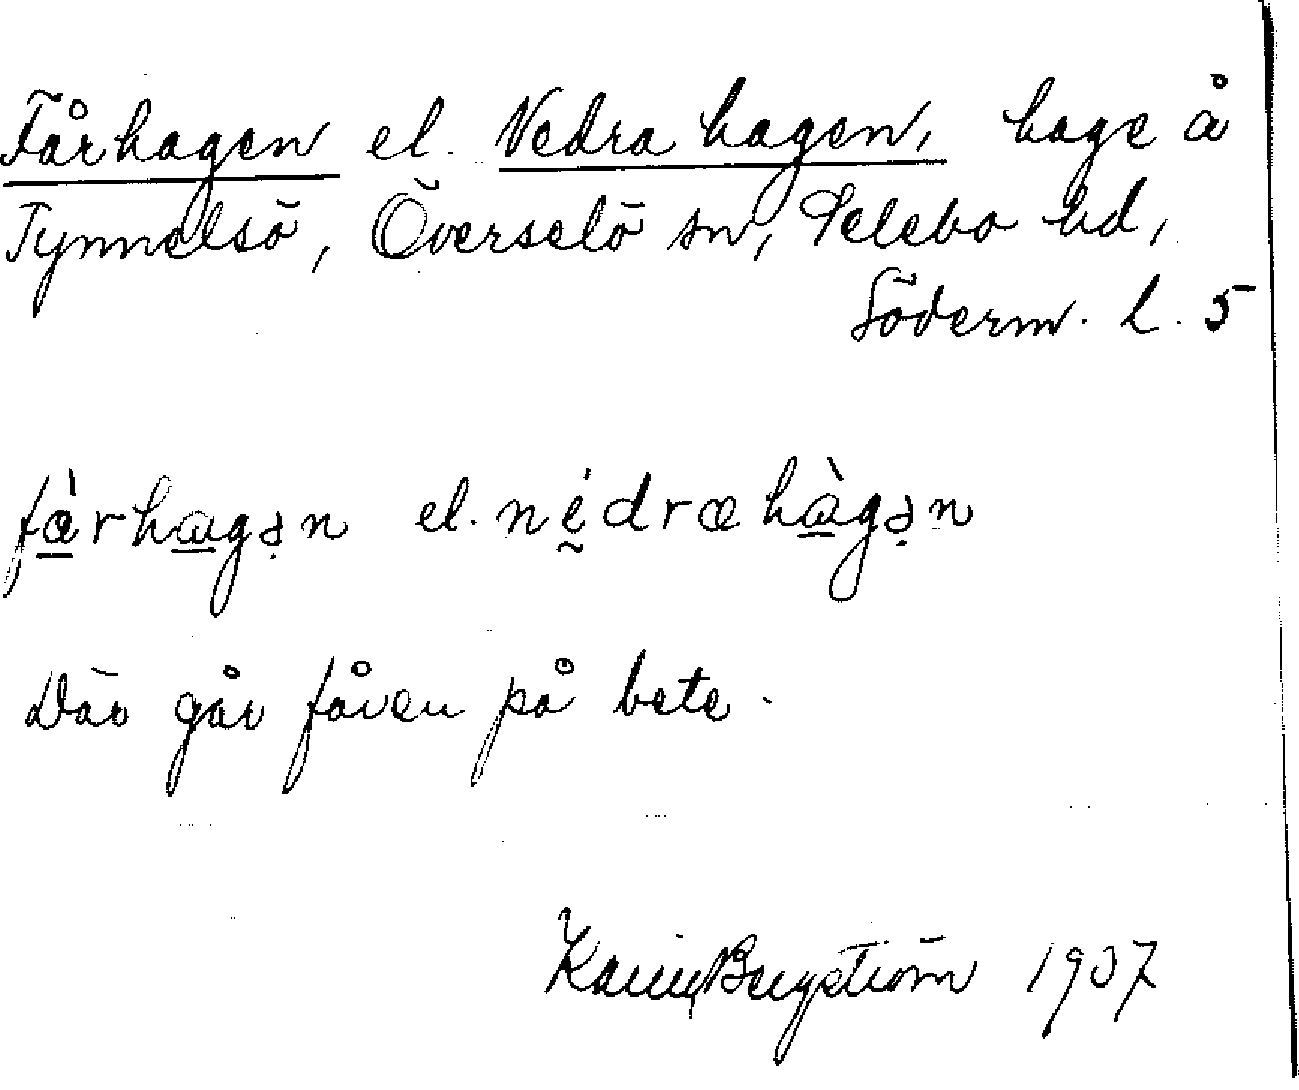 Fårhagen el. Nedra hagen, hage å
Tynnelsö, Överselö sn, Selebo hd,
Söderm. l. 5
fàrhagən el. nédrahàgən
Där går fåren på bete.
Karin Bergström 1907